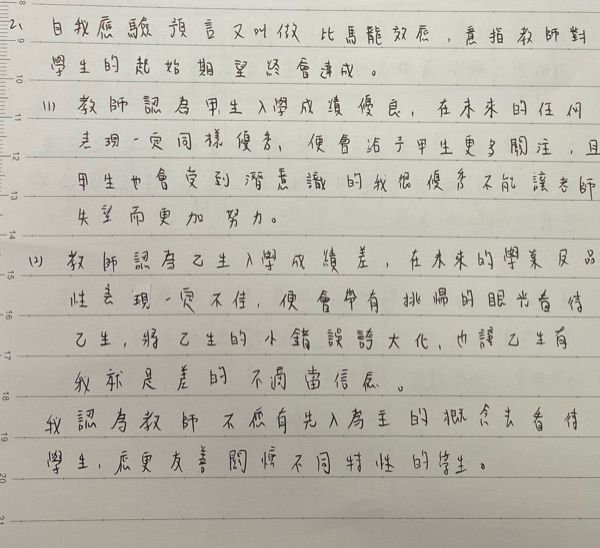 2、自我應驗預言又叫做比馬龍效應，意指教師對
學生的起始期望終會達成。
(1) 教師認為甲生入學成績優良，在未來的任何
表現一定同樣優秀，便會給予甲生更多關注，且
甲生也會受到潛意識的我很優秀不能讓老師
失望而更加努力。
(2) 教師認為乙生入學成績差，在未來的學業及品
性表現一定不佳，便會帶有挑惕的眼光看待
乙生，將乙生的小錯誤誇大化，也讓乙生有
我就是差的不適當信念。
我認為教師不應有先入為主的概念去看待
學生，應更友善關懷不同特性的學生。
8
9
10
11
12
13
14
15
16
17
18
19
20
21